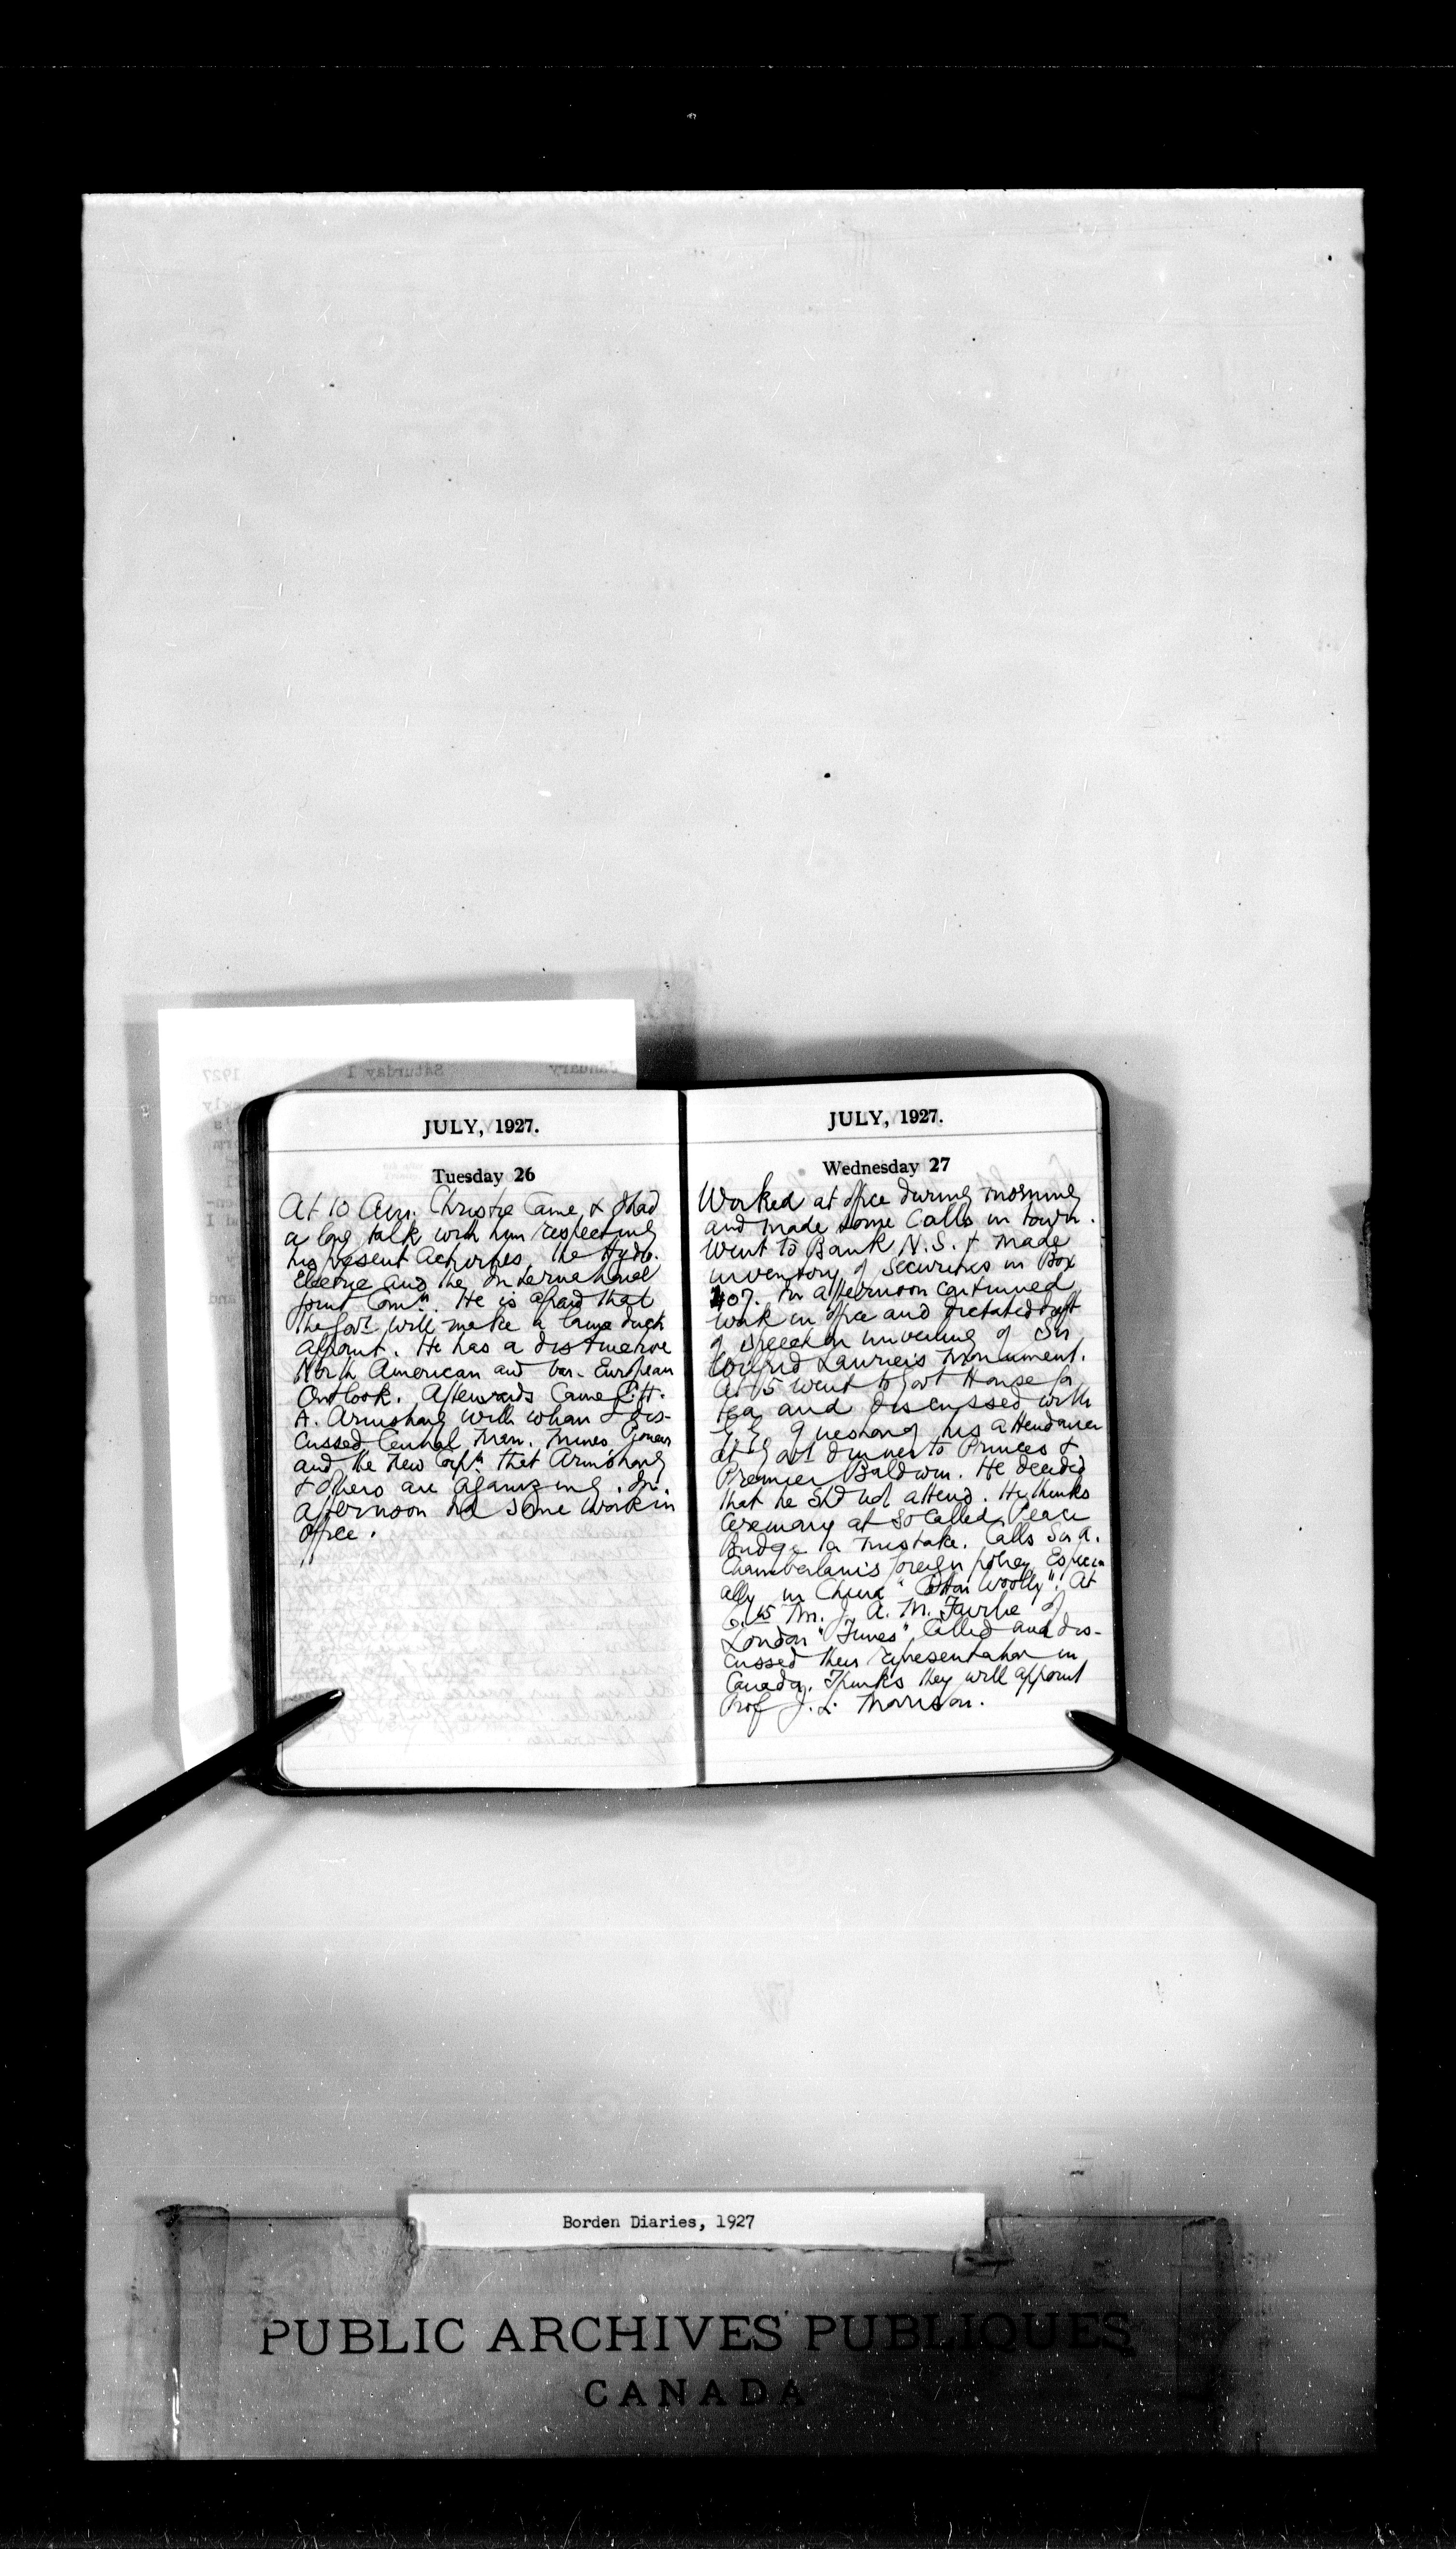 JULY, 1927.
Tuesday 26
At 10 A.m. Christie Came & I had
a long talk with him respecting
his present activities, the Hydro.
Electric and the International
Joint Comn. He is afraid that
the Govt will make a lame duck
appoint. He has a distinctive
North American and European
Outlook. Afterwards Came
A. Armstrong with whom I dis-
cussed Central Man. Mines Power
and the new that Armstrong
& others are organizing. In
afternoon had some work in
office.
JULY, 1927.
Wednesday 27
Worked at office during morning
and made some Calls in town.
Went to Bank N.S. & made
inventory of Securities in Box
407. In afternoon continued
work in office and dictated draft
of speech on unveiling of Sir
Wilfrid Laurier's monument.
At 5 went to Govt House for
tea and discussed with
H.E. question of his attendance
at Govt dinner to Princes &
Premier Baldwin. He decided
that he shd not attend. He thinks
Ceremony at so called Peace
Bridge a mistake. Calls Sir A.
Chamberlain's foreign policy Especi
ally in China "Cotton Woolly". At
6.15 Mr. J. A. M. of
London "Times" Called and dis-
cussed their representation in
Canada. Thinks they will appoint
Prof J. L. Morrison.
January Saturday 1 1927
Borden Diaries, 1927
PUBLIC ARCHIVES PUBLIQUES
CANADA